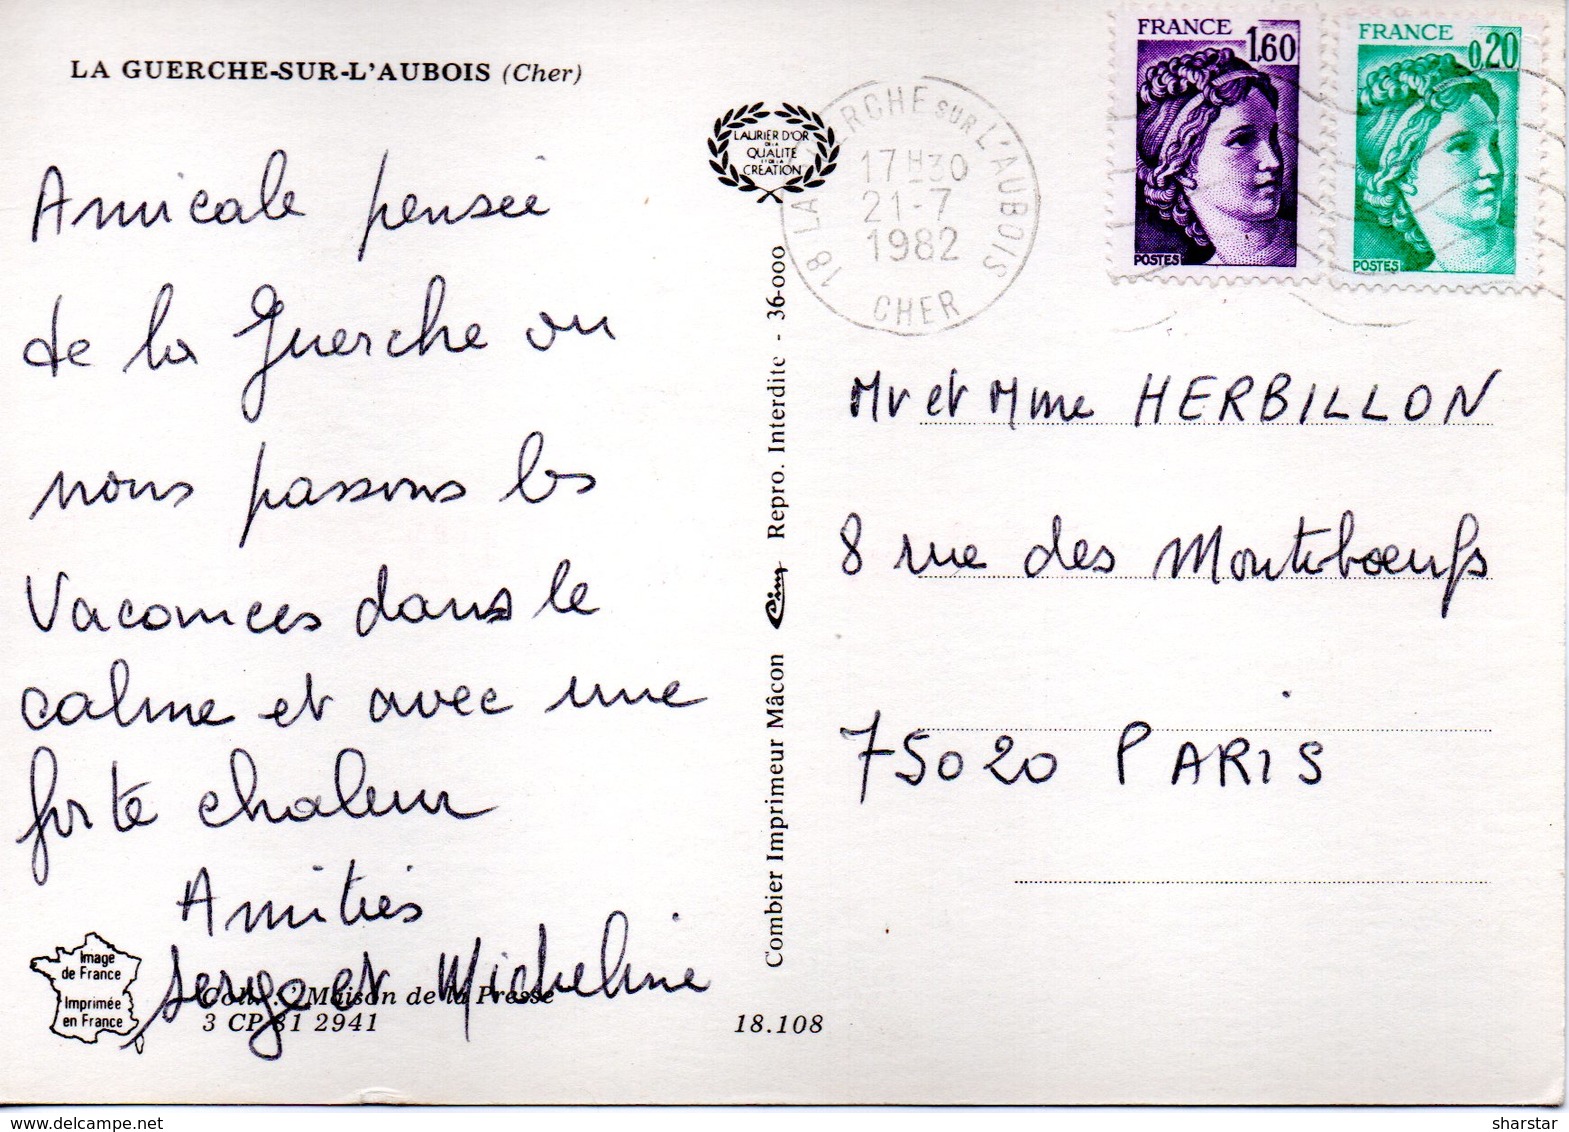 LA GUERCHE-SUR-L'AUBOIS (Cher)
Amicale pensée
de la Guerche ou
nous passons les
Vacances dans le
calme et avec une
forte chaleur
Amitiés
Serge et Micheline
Image
de France
Imprimée
en France
Maison de la Presse
3 CP 81 2941
18.108
LAURIER D'OR
DE LA
QUALITE
ET DE LA
CREATION
Combier Imprimeur Mâcon Cim Repro. Interdite - 36-000
18 LA GUERCHE SUR L'AUBOIS
17 H30
21-7
1982
CHER
FRANCE
1,60
POSTES
FRANCE
0,20
POSTES
Mr et Mme HERBILLON
8 rue des Montibœufs
75020 PARIS
www.delcampe.net
sharstar